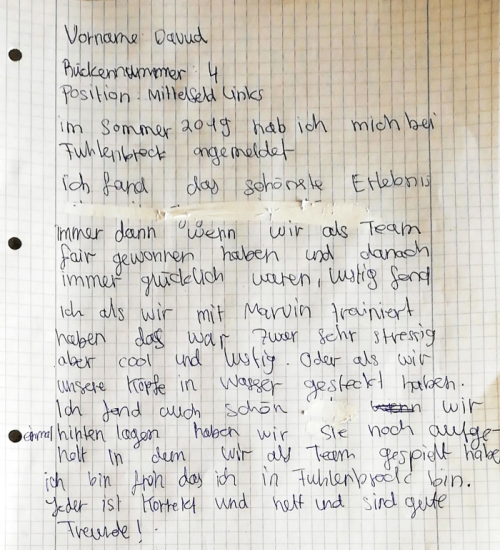 Vorname Davud
Rückennummer: 4
Position: Mittelfeld Links
im Sommer 2019 hab ich mich bei
Fuhlenbrock angemeldet
ich fand das schönste Erlebnis
immer dann wenn wir als Team
fair gewonnen haben und danach
immer glücklich waren, lustig fand
Ich als wir mit Marvin trainiert
haben das war zwar sehr stressig
aber cool und lustig. Oder als wir
unsere Köpfe in Wasser gesteckt haben.
Ich fand auch schön. wir
einmal hinten lagen haben wir sie noch aufge-
holt in dem wir als Team gespielt habe
ich bin froh das ich in Fuhlenbrock bin.
Jeder ist Korrekt und nett und sind gute
Freunde!